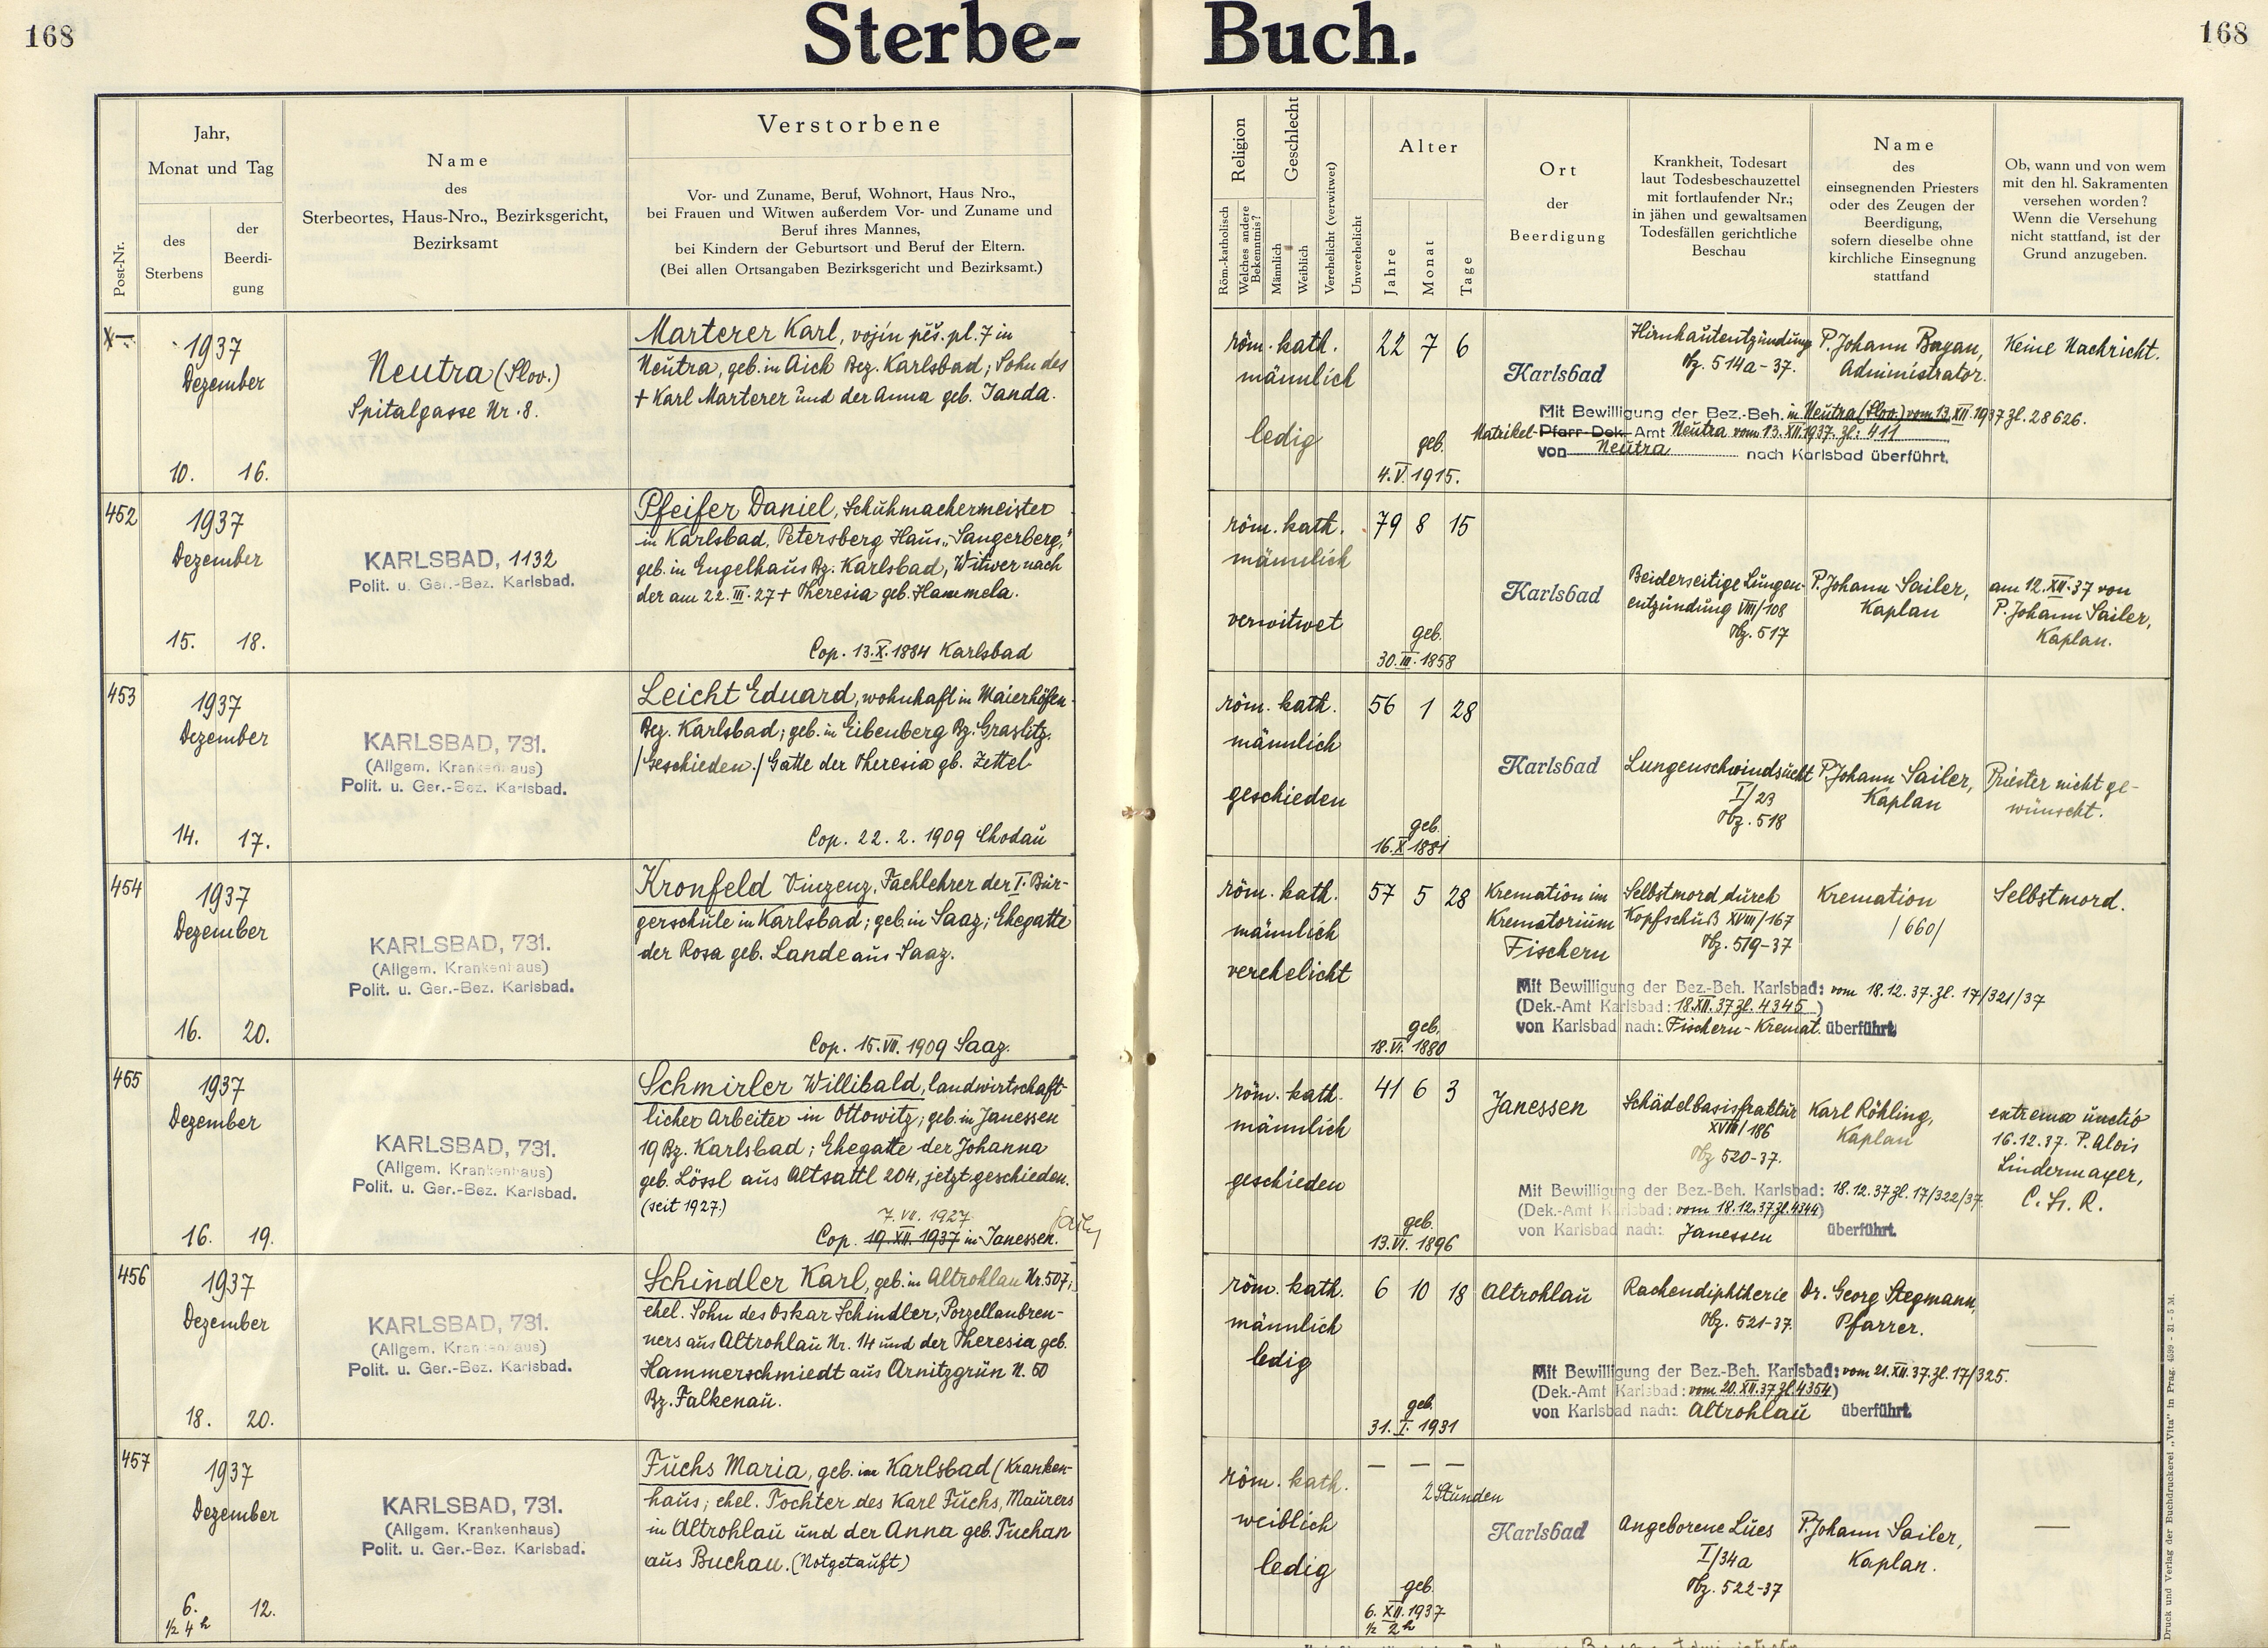 168
Sterbe-
Buch.
168
Post-Nr.
Jahr,
Monat und Tag
des
Sterbens
der
Beerdi-
gung
Name
des
Sterbeortes, Haus-Nro., Bezirksgericht,
Bezirksamt
Verstorbene
Vor- und Zuname, Beruf, Wohnort, Haus Nro.,
bei Frauen und Witwen außerdem Vor- und Zuname und
Beruf ihres Mannes,
bei Kindern der Geburtsort und Beruf der Eltern.
(Bei allen Ortsangaben Bezirksgericht und Bezirksamt.)
Religion
Röm.-katholisch
Welches andere
Bekenntnis?
Geschlecht
Männlich
Weiblich
Verehelicht (verwitwet)
Unverehelicht
Alter
Jahre
Monat
Tage
Ort
der
Beerdigung
Krankheit, Todesart
laut Todesbeschauzettel
mit fortlaufender Nr.;
in jähen und gewaltsamen
Todesfällen gerichtliche
Beschau
Name
des
einsegnenden Priesters
oder des Zeugen der
Beerdigung,
sofern dieselbe ohne
kirchliche Einsegnung
stattfand
Ob, wann und von wem
mit den hl. Sakramenten
versehen worden?
Wenn die Versehung
nicht stattfand, ist der
Grund anzugeben.
1937
Dezember
10. 16.
Neutra (Slov.)
Spitalgasse Nr. 8.
Marterer Karl, vojín pěš. pl. 7 in
Neutra, geb. in Aich Bez. Karlsbad; Sohn des
+ Karl Marterer und der Anna geb. Janda.
röm. kath.
männlich
ledig
22 7 6
geb.
4. V. 1915.
Karlsbad
Hirnhautentzündung
Obz. 514a-37.
P. Johann Bayan,
Administrator.
Keine Nachricht.
Mit Bewilligung der Bez.-Beh. in Neutra (Slov.) vom 13. XII. 1937 Zl. 28626.
Matrikel- Pfarr-Dek. Amt Neutra vom 13. XII. 1937. Zl: 411
von Neutra nach Karlsbad überführt.
452
1937
Dezember
15. 18.
KARLSBAD, 1132
Polit. u. Ger.-Bez. Karlsbad.
Pfeifer Daniel, Schuhmachermeister
in Karlsbad, Petersberg Haus „Sangerberg,"
geb. in Engelhaus Bz. Karlsbad, Witwer nach
der am 22. III. 27 + Theresia geb. Hammela.
Cop. 13. X. 1884 Karlsbad
röm. kath.
männlich
verwitwet
79 8 15
geb.
30. III. 1858
Karlsbad
Beiderseitige Lungen-
entzündung VIII/108
Obz. 517
P. Johann Sailer,
Kaplan
am 12. XII. 37 von
P. Johann Sailer,
Kaplan.
453
1937
Dezember
14. 17.
KARLSBAD, 731.
(Allgem. Krankenhaus)
Polit. u. Ger.-Bez. Karlsbad.
Leicht Eduard, wohnhaft in Maierhöfen
Bez. Karlsbad; geb. in Eibenberg Bz. Graslitz.
/Geschieden./ Gatte der Theresia gb. Zettel
Cop. 22. 2. 1909 Chodau
röm. kath.
männlich
geschieden
56 1 28
geb.
16. X 1881
Karlsbad
Lungenschwindsucht
I/23
Obz. 518
P. Johann Sailer,
Kaplan
Priester nicht ge-
wünscht.
454
1937
Dezember
16. 20.
KARLSBAD, 731.
(Allgem. Krankenhaus)
Polit. u. Ger.-Bez. Karlsbad.
Kronfeld Vinzenz, Fachlehrer der I. Bür-
gerschule in Karlsbad; geb. in Saaz; Ehegatte
der Rosa geb. Lande aus Saaz.
Cop. 15. VII. 1909 Saaz.
röm. kath.
männlich
verehelicht
57 5 28
geb.
18. VI. 1880
Kremation im
Krematorium
Fischern
Selbstmord durch
Kopfschuß XVIII/167
Obz. 519-37
Kremation
/660/
Selbstmord.
Mit Bewilligung der Bez.-Beh. Karlsbad: vom 18.12.37. Zl. 17/321/37
(Dek.-Amt Karlsbad: 18. XII. 37 Zl. 4345)
von Karlsbad nach: Fischern-Kremat. überführt.
455
1937
Dezember
16. 19.
KARLSBAD, 731.
(Allgem. Krankenhaus)
Polit. u. Ger.-Bez. Karlsbad.
Schmirler Willibald, landwirtschaft-
licher Arbeiter in Ottowitz; geb. in Janessen
19 Bz. Karlsbad; Ehegatte der Johanna
geb. Lössl aus Altsattl 204, jetzt geschieden.
(seit 1927.)
7. VII. 1927
Cop. 19. XII. 1937 in Janessen.
röm. kath.
männlich
geschieden
41 6 3
geb.
13. VI. 1896
Janessen
Schädelbasisfraktur
XVIII/186
Obz 520-37.
Karl Röhling,
Kaplan
extrema unctio
16.12.37. P. Alois
Lindermayer,
C. Ss. R.
Mit Bewilligung der Bez.-Beh. Karlsbad: 18.12.37 Zl. 17/322/37
(Dek.-Amt Karlsbad: vom 18.12.37 Zl. 4344)
von Karlsbad nach: Janessen überführt.
456
1937
Dezember
18. 20.
KARLSBAD, 731.
(Allgem. Krankenhaus)
Polit. u. Ger.-Bez. Karlsbad.
Schindler Karl, geb. in Altrohlau Nr. 507;
ehel. Sohn des Oskar Schindler, Porzellanbren-
ners aus Altrohlau Nr. 14 und der Theresia geb.
Hammerschmiedt aus Arnitzgrün N. 50
Bz. Falkenau.
röm. kath.
männlich
ledig
6 10 18
geb.
31. I. 1931
Altrohlau
Rachendiphtherie
Obz. 521-37.
Dr. Georg Stegmann,
Pfarrer.
Mit Bewilligung der Bez.-Beh. Karlsbad: vom 21. XII. 37. Zl. 17/325.
(Dek.-Amt Karlsbad: vom 20. XII. 37 Zl. 4354)
von Karlsbad nach: Altrohlau überführt.
457
1937
Dezember
6. 12.
½ 4 h
KARLSBAD, 731.
(Allgem. Krankenhaus)
Polit. u. Ger.-Bez. Karlsbad.
Fuchs Maria, geb. in Karlsbad (Kranken-
haus; ehel. Tochter des Karl Fuchs, Maurers
in Altrohlau und der Anna geb. Tuchan
aus Buchau. (Notgetauft)
röm. kath.
weiblich
ledig
— — —
2 Stunden
geb.
6. XII. 1937
½ 2 h
Karlsbad
Angeborene Lues
I/34a
Obz. 522-37
P. Johann Sailer,
Kaplan.
—
Druck und Verlag der Buchdruckerei „Vita" in Prag. 4599 - 31 - 5 M.